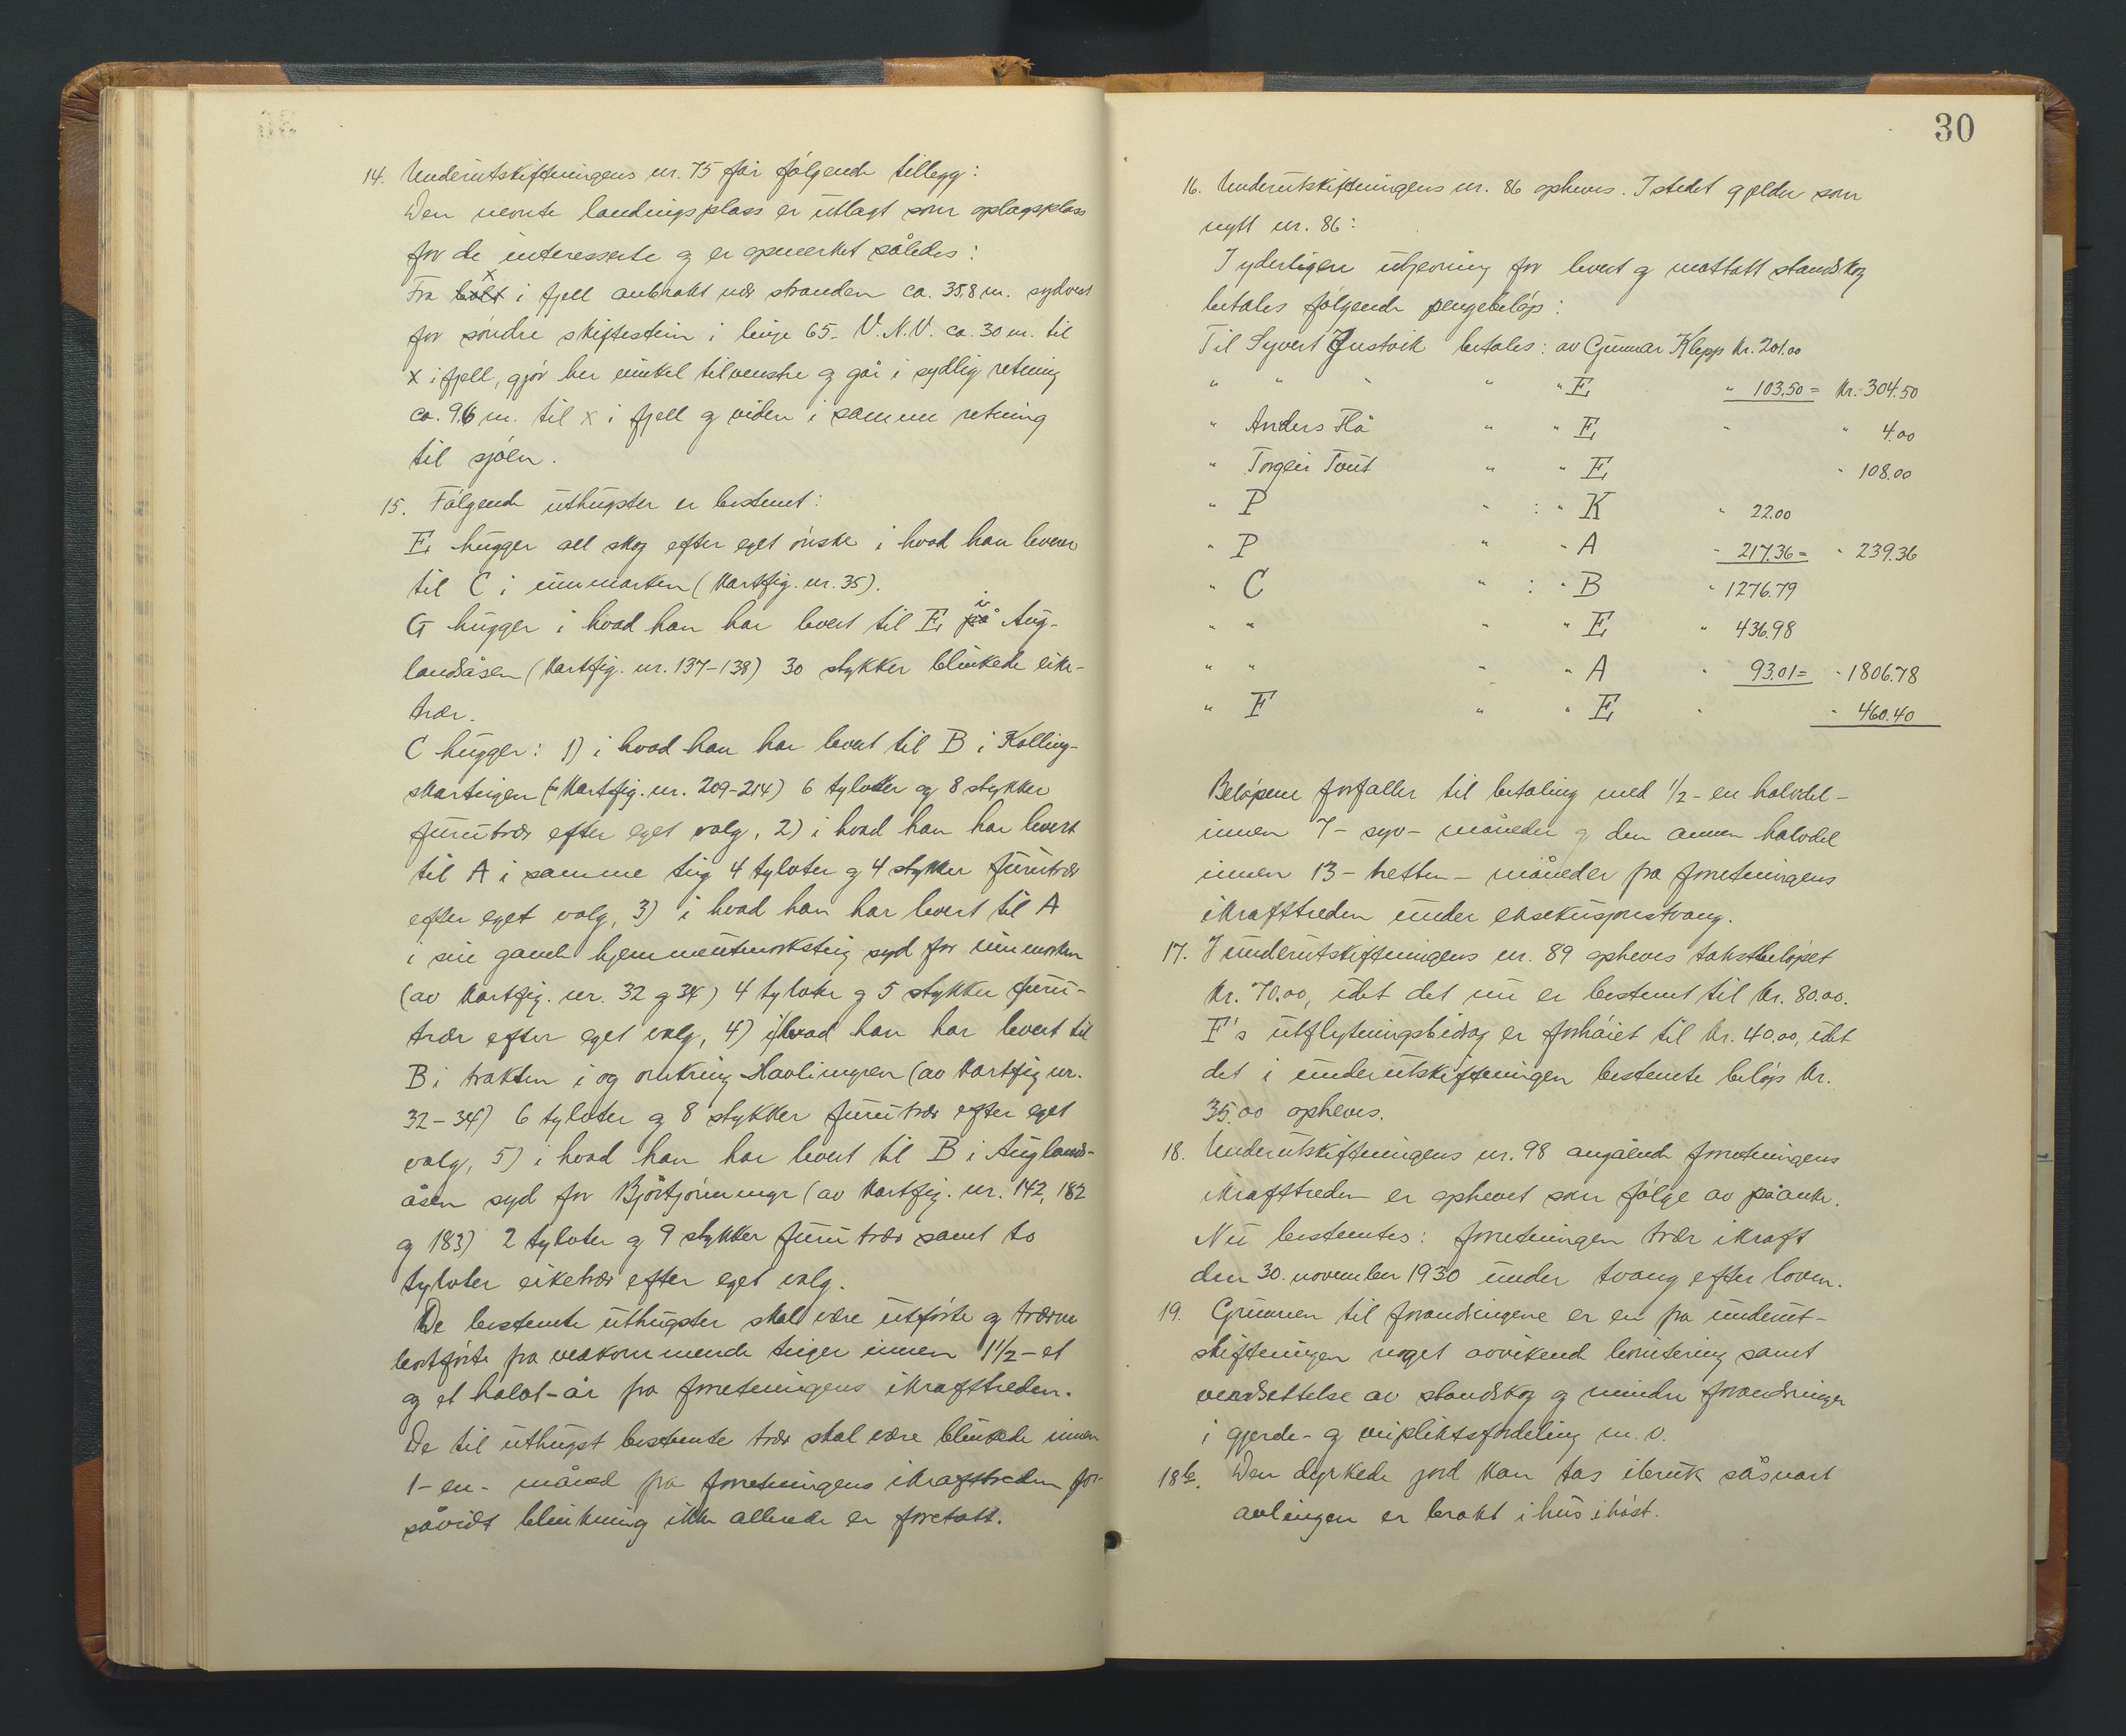 14. Underutskiftningens nr. 75 får følgende tillegg:
Den nevnte landingsplass er utlagt som oplagsplass
for de interesserte og er opmerket således:
Fra x i fjell anbrakt ved stranden ca. 35,8 m. sydvest
for søndre skiftestein i linje 65. V.N.V. ca. 30 m. til
x i fjell, gjør her vinkel til venstre og går i sydlig retning
ca. 9.6 m. til x i fjell og viden i samme retning
til sjøen.
15. Følgende uthugster er bestemt:
E hugger all skog efter eget ønske i hvad han leverer
til C i innmarken (Kartfig. nr. 35).
G hugger i hvad han har levert til E i Aug-
landsåsen (Kartfig. nr. 137-138) 30 stykker blinkede eike-
trær.
C hugger: 1) i hvad han har levert til B i Kolling-
skarteigen (Kartfig. nr. 209-214) 6 tylvter og 8 stykker
furutrær efter eget valg, 2) i hvad han har levert
til A i samme teig 4 tylvter og 4 stykker furutrær
efter eget valg, 3) i hvad han har levert til A
i sin gamle hjemmeutmarksteig syd for innmarken
(av Kartfig. nr. 32 og 34) 4 tylvter og 5 stykker furu-
trær efter eget valg, 4) i hvad han har levert til
B i trakten i og omkring Havlimyren (av Kartfig nr.
32-34) 6 tylvter og 8 stykker furutrær efter eget
valg, 5) i hvad han har levert til B i Auglands-
åsen syd for Bjørtjønnmyr (av Kartfig. nr. 142, 182
og 183) 2 tylvter og 9 stykker furutrær samt to
tylvter eiketrær efter eget valg.
De bestemte uthugster skal være utførte og trærne
bortførte fra vedkommende teiger innen 1 1/2 - et
og et halvt - år fra forretningens ikrafttreden.
De til uthugst bestemte trær skal være blinkede innen
1 - en - måned fra forretningens ikrafttreden for-
såvidt blinkning ikke allerede er foretatt.
30
16. Underutskiftningens nr. 86 opheves. Istedet gjelder som
nytt nr. 86:
I yderligere utjevning for levert og mottatt standskog
betales følgende pengebeløp:
Til Syvert Justvik betales: av Gunnar Klepp kr. 201.00
" " " " " E " 103.50 = Kr. 304.50
" Anders Flå " " E " " 4.00
" Torgeir Tveit " " E " 108.00
" P " : " K " 22.00
" P " " A " 217.36 = " 239.36
" C " : " B " 1276.79
" " " " E " 436.98
" " " " A " 93.01 = " 1806.78
" F " " E " " 460.40
Beløpene forfaller til betaling med 1/2 - en halvdel -
innen 7 - syv - måneder og den annen halvdel
innen 13 - tretten - måneder fra forretningens
ikrafttreden under eksekusjonstvang.
17. I underutskiftningens nr. 89 opheves takstbeløpet
Kr. 70.00, idet det nu er bestemt til Kr. 80.00.
F's utflytningsbidrag er forhøiet til Kr. 40.00, idet
det i underutskiftningen bestemte beløp Kr.
35.00 opheves.
18. Underutskiftningens nr. 98 angående forretningens
ikrafttreden er ophevet som følge av påanke.
Nu bestemtes: forretningen trær ikraft
den 30. november 1930 under tvang efter loven.
19. Grunnen til forandringene er en fra underut-
skiftningen noget avvikende bonitering samt
verdsettelse av standskog og mindre forandringer
i gjerde- og veipliktsfordeling m.v.
18b. Den dyrkede jord kan tas ibruk såsnart
avlingen er brakt i hus ihøst.